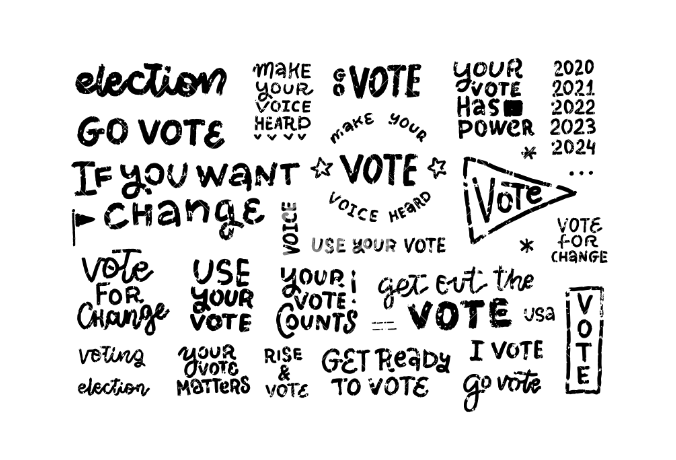 election
GO VOTE
MAKE
YOUR
VOICE
HEARD
GO VOTE
YOUR
VOTE
HAS
POWER
2020
2021
2022
2023
2024
...
IF YOU WANT
CHANGE
MAKE YOUR
VOTE
VOICE HEARD
Vote
VOTE
FOR
CHANGE
VOICE
USE YOUR VOTE
Vote
FOR
Change
USE
YOUR
VOTE
YOUR
VOTE
COUNTS
!
get out the
VOTE usa
VOTE
voting
election
YOUR
VOTE
MATTERS
RISE
&
VOTE
GET READY
TO VOTE
I VOTE
go vote